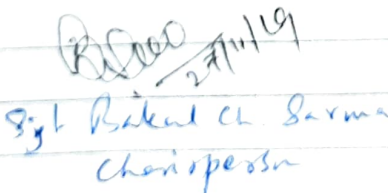 27/11/19
Sijt Bakul Ch. Sarma
Cheirperson